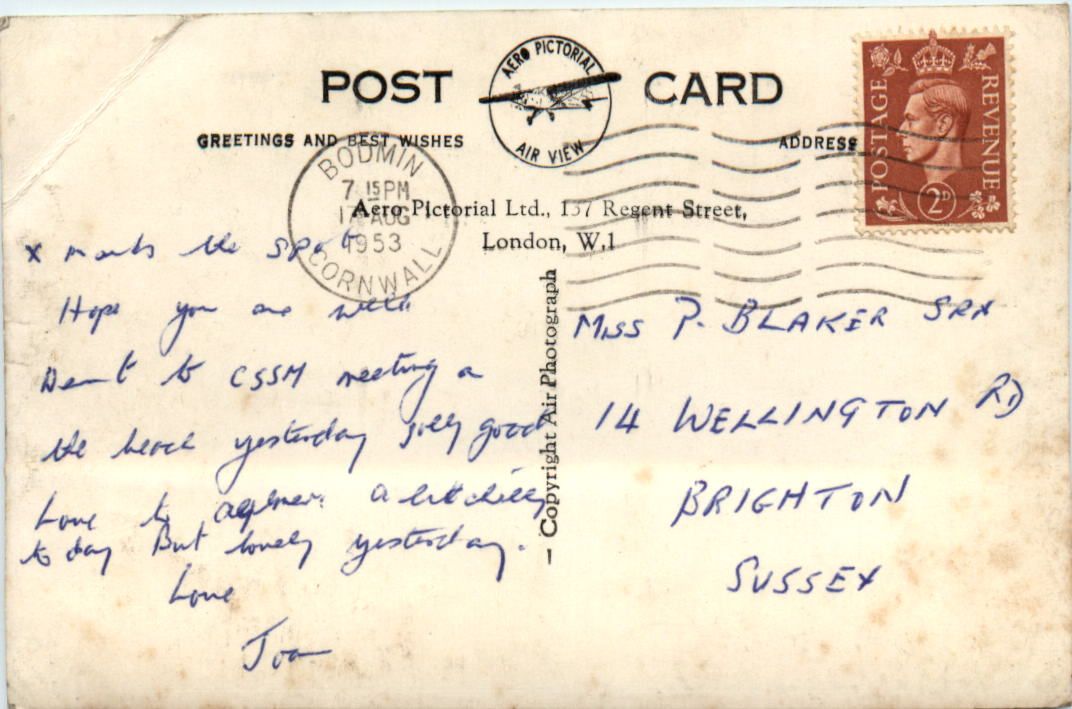 POST CARD
AERO PICTORIAL
AIR VIEW
GREETINGS AND BEST WISHES
ADDRESS
POSTAGE REVENUE
2D
BODMIN
7 15PM
17 AUG
1953
CORNWALL
Aero Pictorial Ltd., 137 Regent Street,
London, W.1
— Copyright Air Photograph
x marks the spot
Hope you are well
Went to CSSM meeting on
the beach yesterday jolly good
Love to A bit chilly
to day But lovely yesterday.
Love
Joan
MISS P. BLAKER
14 WELLINGTON RD
BRIGHTON
SUSSEX